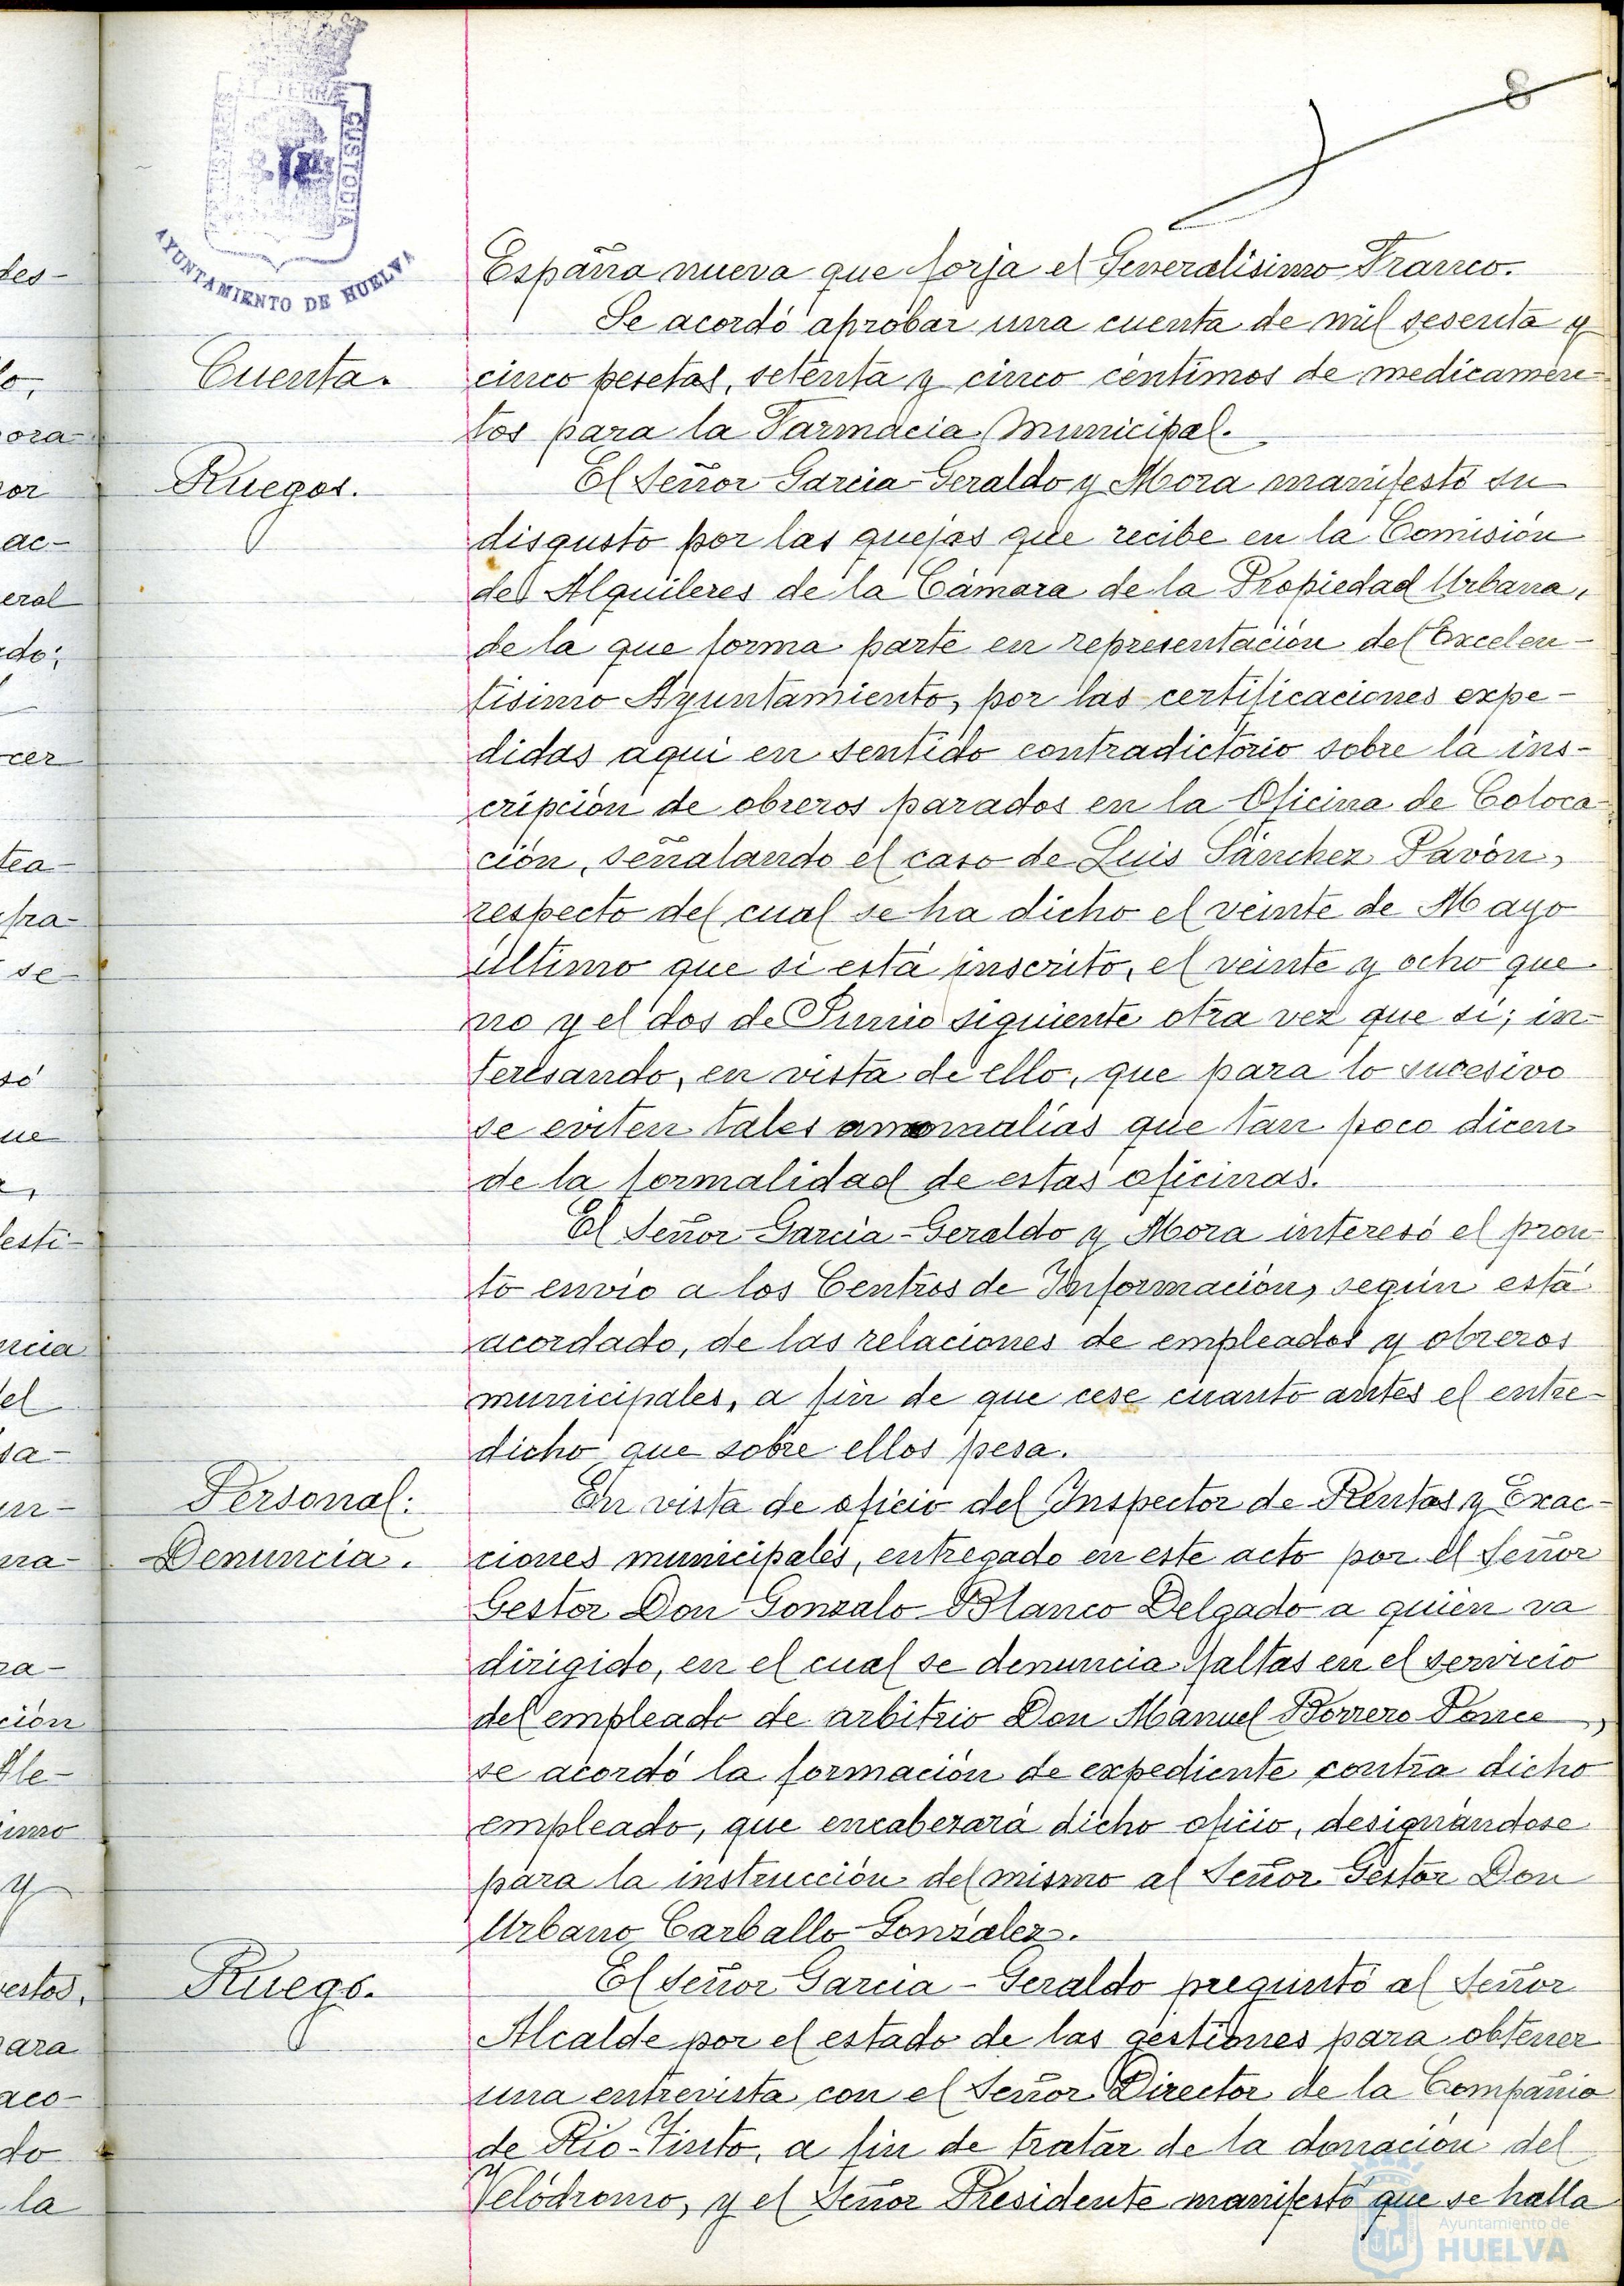 8
TERRÆ
CUSTODIA
AYUNTAMIENTO DE HUELVA
España nueva que forja el Generalisimo Franco.
Se acordó aprobar una cuenta de mil sesenta y
Cuenta.
cinco pesetas, setenta y cinco céntimos de medicamen-
tos para la Farmacia Municipal.
Ruegos.
El Señor Garcia-Geraldo y Mora manifestó su
disgusto por las quejas que recibe en la Comisión
de Alquileres de la Cámara de la Propiedad Urbana,
de la que forma parte en representación del Excelen-
tisimo Ayuntamiento, por las certificaciones expe-
didas aqui en sentido contradictorio sobre la ins-
cripción de obreros parados en la Oficina de Coloca-
ción, señalando el caso de Luis Sánchez Pavón,
respecto del cual se ha dicho el veinte de Mayo
último que si está inscrito, el veinte y ocho que
no y el dos de Junio siguiente otra vez que si; in-
teresando, en vista de ello, que para lo sucesivo
se eviten tales anomalías que tan poco dicen
de la formalidad de estas oficinas.
El Señor Garcia-Geraldo y Mora interesó el pron-
to envio a los Centros de Información, según está
acordado, de las relaciones de empleados y obreros
municipales, a fin de que cese cuanto antes el entre-
dicho que sobre ellos pesa.
Personal:
Denuncia.
En vista de oficio del Inspector de Rentas y Exac-
ciones municipales, entregado en este acto por el Señor
Gestor Don Gonzalo Blanco Delgado a quien va
dirigido, en el cual se denuncia faltas en el servicio
del empleado de arbitrio Don Manuel Borrero Ponce,
se acordó la formación de expediente contra dicho
empleado, que encabezará dicho oficio, designándose
para la instrucción del mismo al Señor Gestor Don
Urbano Carballo González.
Ruego.
El Señor Garcia-Geraldo preguntó al Señor
Alcalde por el estado de las gestiones para obtener
una entrevista con el Señor Director de la Compañia
de Rio-Tinto, a fin de tratar de la donación del
Velódromo, y el Señor Presidente manifestó que se halla
Ayuntamiento de
HUELVA